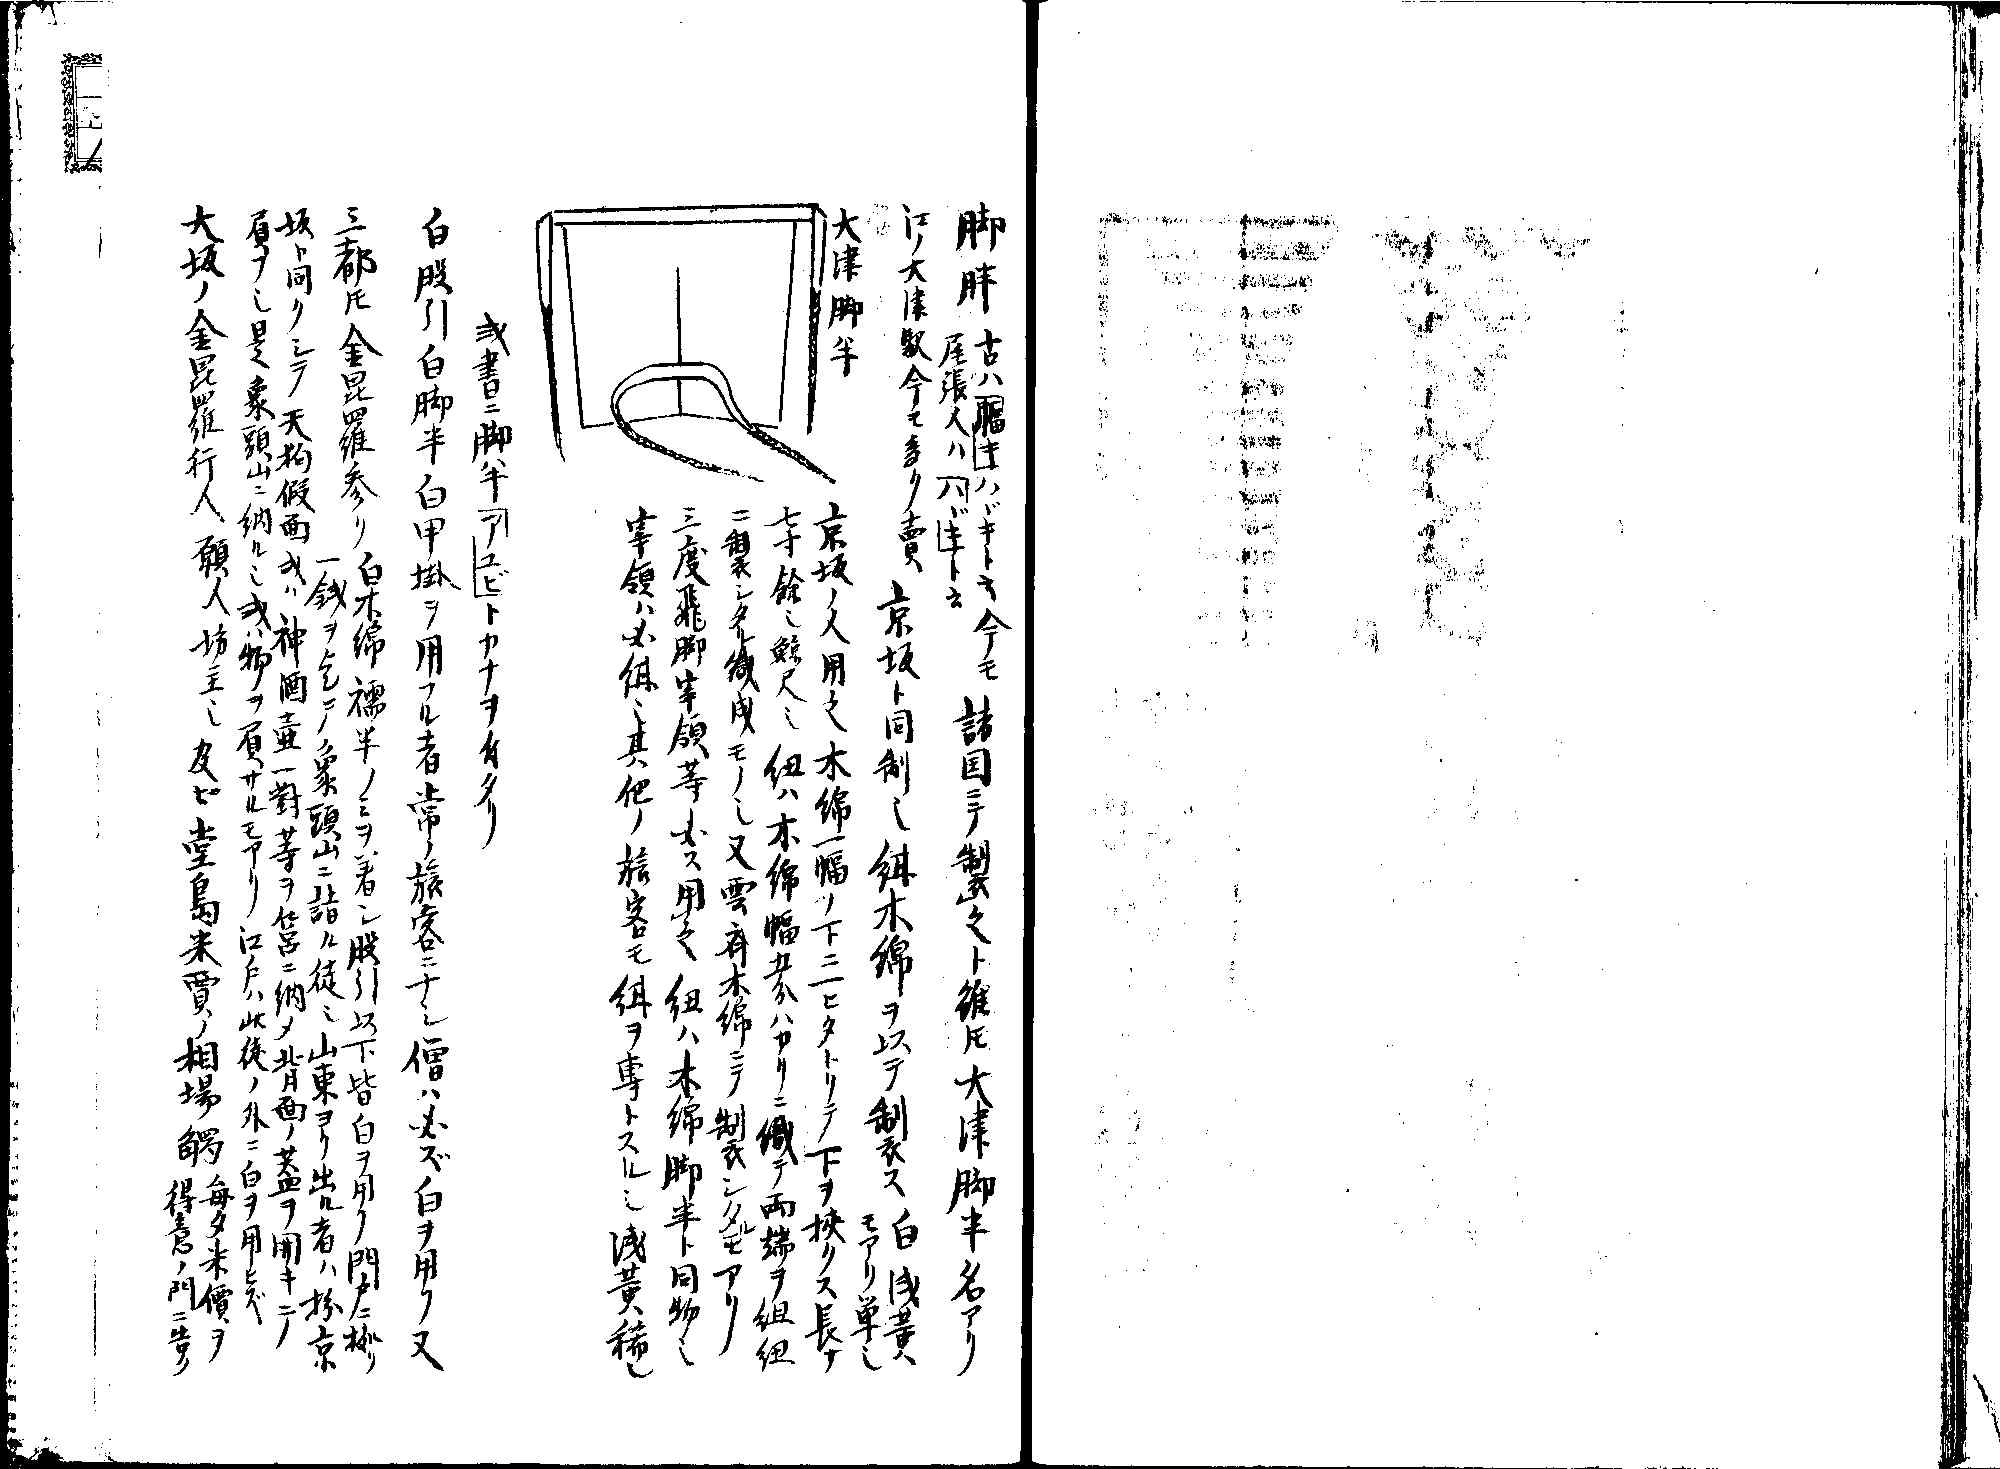 脚胖 古ハ脛巾ハバキト云今モ 諸国ニテ製之ト雖𪜈大津脚半名アリ
尾張人ハハバキト云
江ノ大津駅今モ多ク賣 京坂ト同制也 紺木綿ヲ以テ製ス 白浅黄
モアリ単也
大津脚半
京坂ノ人用之木綿一幅ノ下ニ一ヒタトリテ下ヲ挟クス長サ
七寸餘也鯨尺也 紐ハ木綿幅五分ハカリニ織テ両端ヲ組紐
ニ製シタル織成モノ也又雲斎木綿ニテ製シタルモアリ
三度飛脚宰領等必ス用之 紐ハ木綿脚半ト同物也
宰領ハ必紺也其他ノ旅客モ紺ヲ専トスル也浅黄稀也
或書ニ脚半アユビトカナヲ付タリ
白股引白脚半白甲掛ヲ用フル者常ノ旅客ニナシ僧ハ必ズ白ヲ用フ又
三都𪜈金毘羅参リ 白木綿襦半ノミヲ着シ股引以下皆白ヲ用ク門戸ニ拠リ
一銭ヲ乞テ象頭山ニ詣ル徒也山東ヨリ出ル者ハ扮京
坂ト同クシテ天狗假面或ハ神酒壷一對等ヲ筥ニ納メ背面ノ蓋ヲ開キテ
肩ヲシ是ヲ象頭山ニ納ル也或ハ物ヲ肩サルモアリ江戸ハ此徒ノ外ニ白ヲ用ヒズ
大坂ノ金毘羅行人 願人坊主也 及ビ堂島米賈ノ相場觸 毎夕米價ヲ
得意ノ門ニ告ク